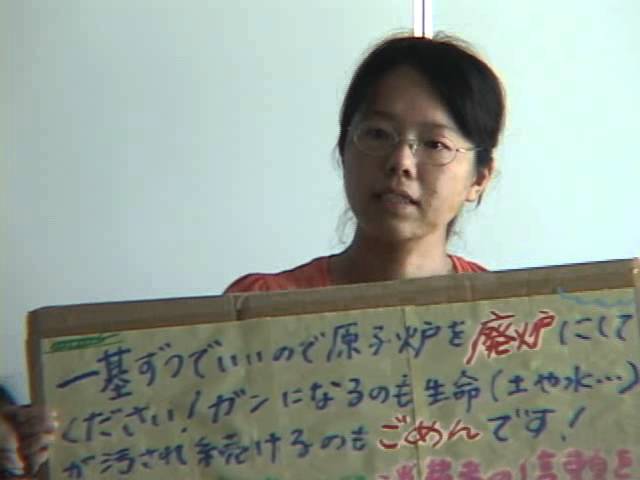 一基ずつでいいので原子炉を廃炉にして
ください!ガンになるのも生命(土や水…)
が汚され続けるのもごめんです!
消費者の信頼を